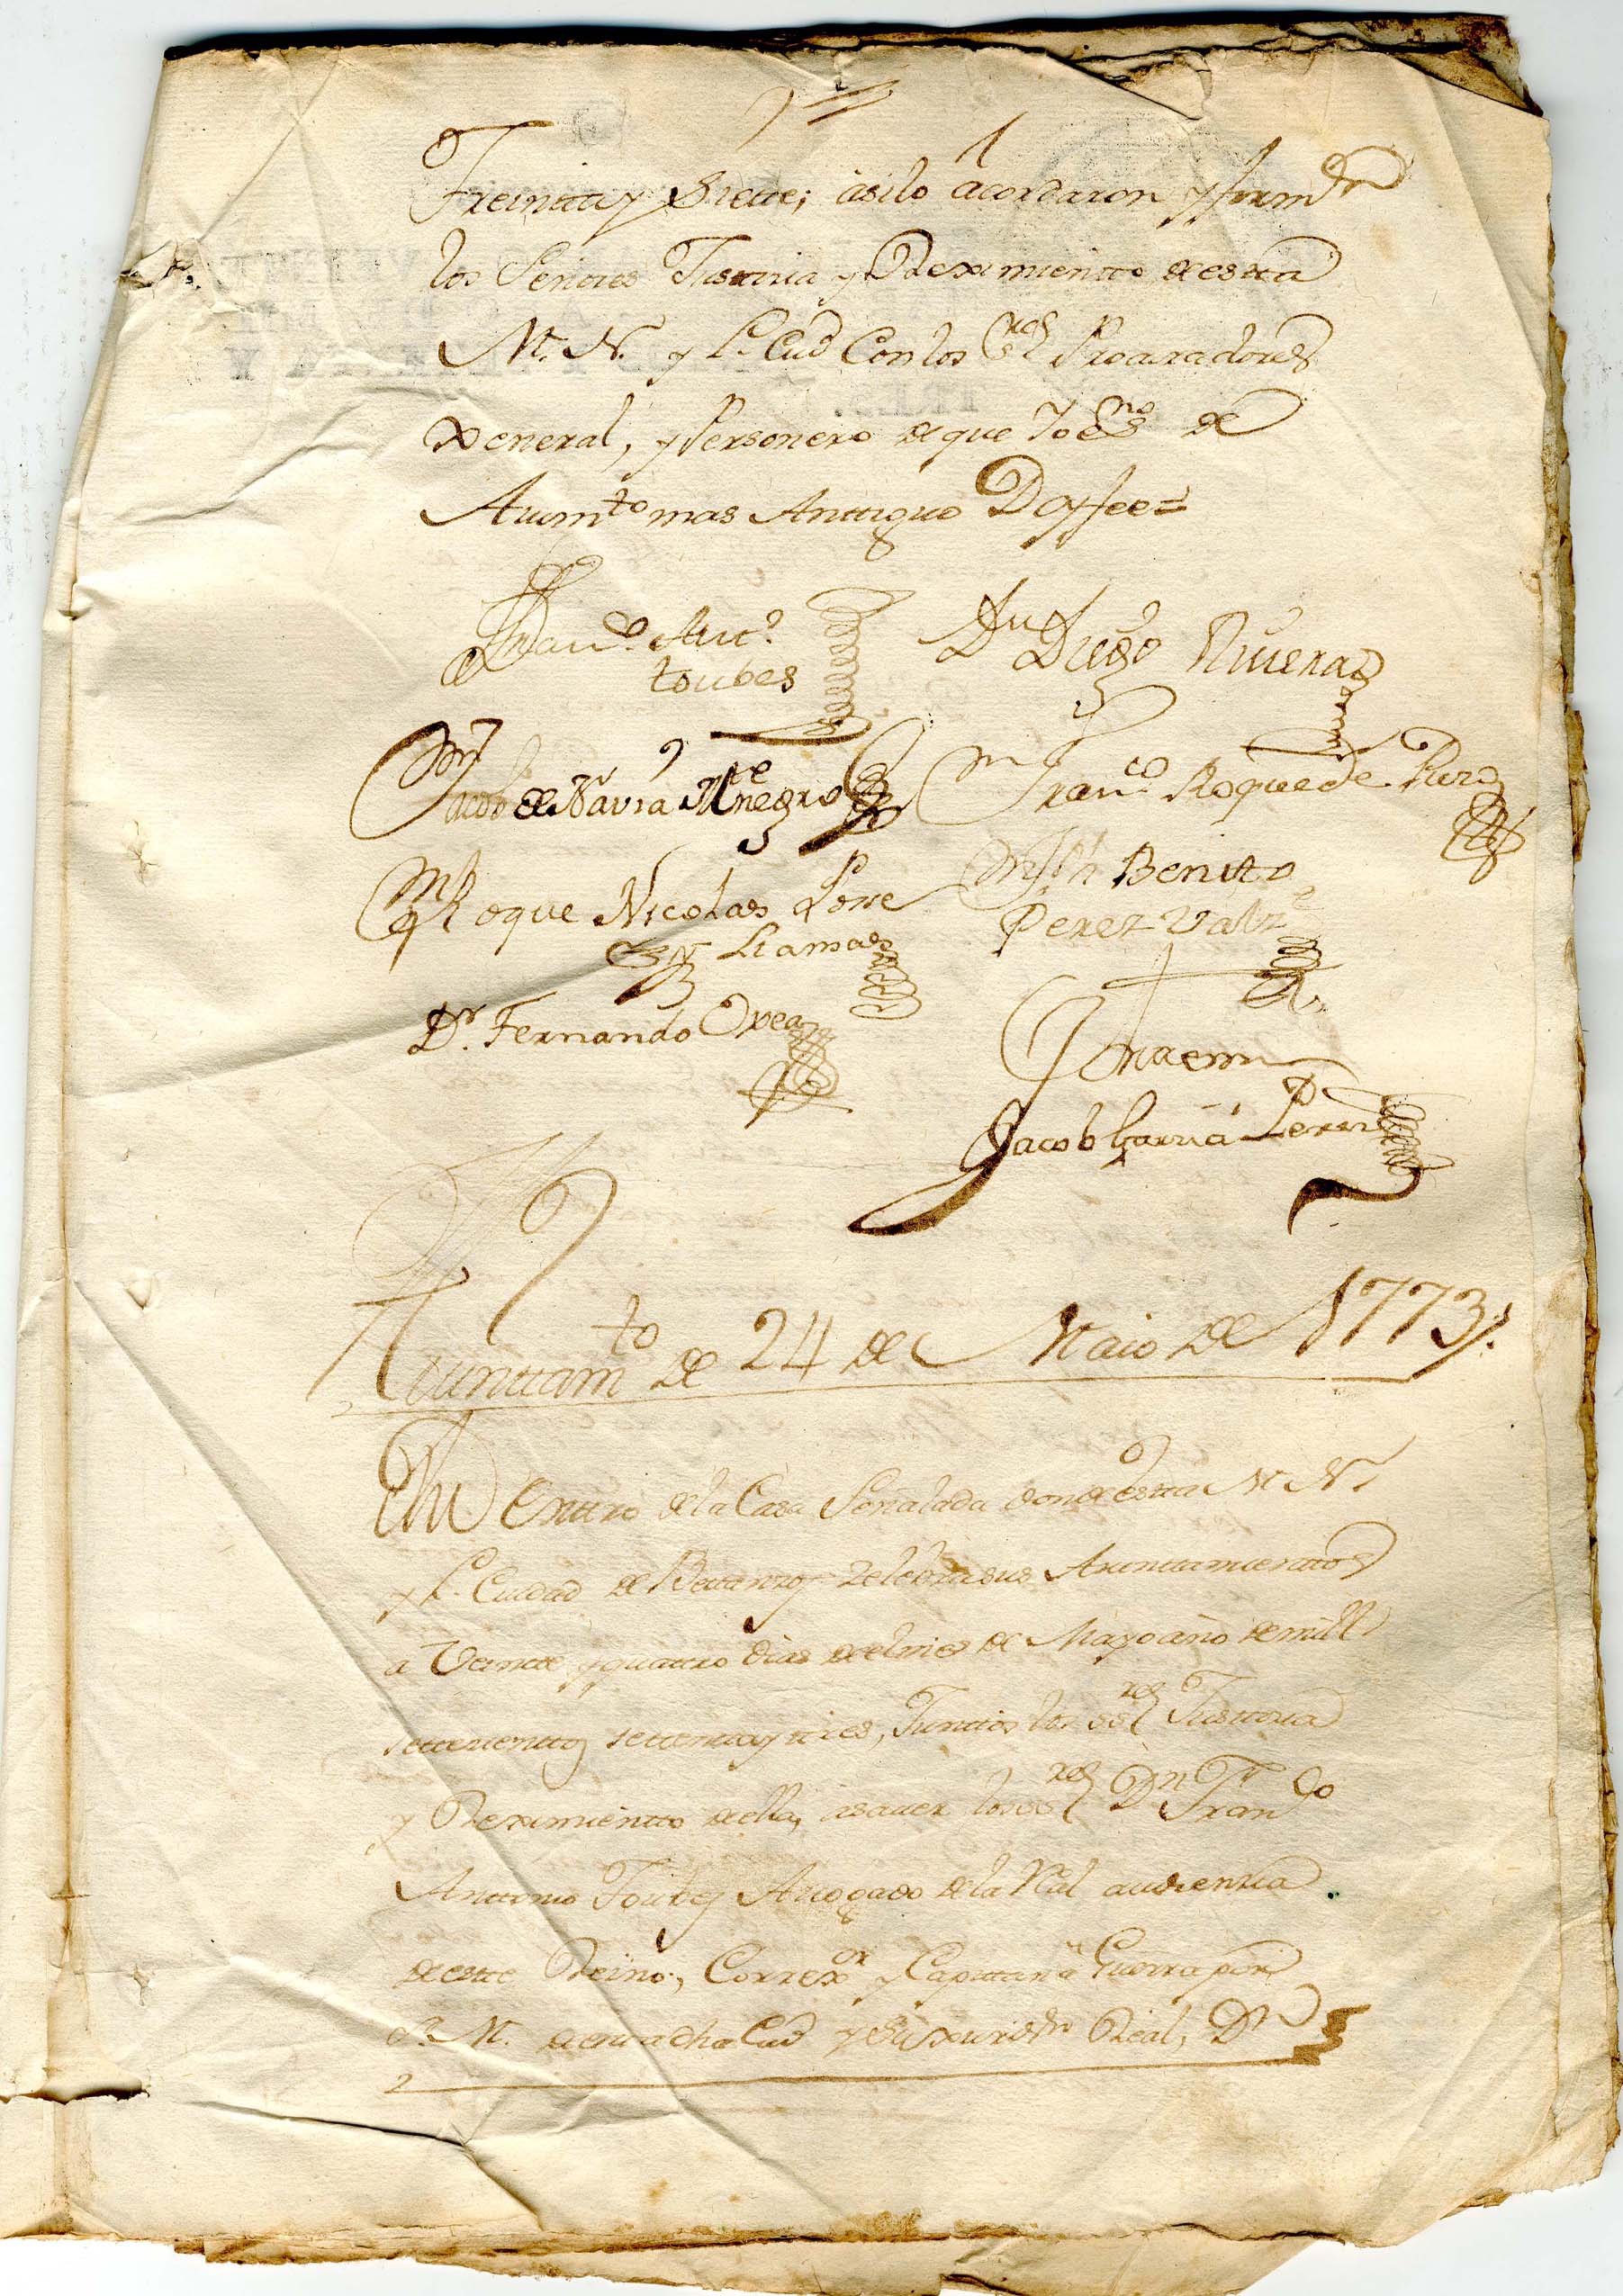 Treintta y Siette; asilo acordaron y firmn
los Señores Justicia y Reximientto de estta
M. N. y L. Ciud Con los Sres Procuradores
Xeneral, y Personero de que Yo esno de
Aiuntto mas Anttiguo Doy fee=
Franco Antº
toubes
Dn Diego Rivera
Jacob de Navia Mnegro
Franco Roque de
Roque Nicolas
Llamas
Jph Benito
Perez
Dr. Fernando Oxea
Antte mi
Jacob Garcia Perez
Aiunttamto de 24 de Maio de 1773,,
Denttro de la Casa Señalada donde estta M N.
y L. Ciudad de Bettanzos zelebra sus Aiunttamienttos
a Veintte y quattro dias de el mes de Mayo año de mill
settecienttos settentta y tres, Junttos los SSres Justticia
y Reximientto de ella, asauer los SSres Dn Franco
Anttonio Toubes Auogado de la Rl audiencia
de estte Reino, Correxor y Capittan a Guerra por
S. M. de estta dha Ciud y su xurisdn Real, Dn